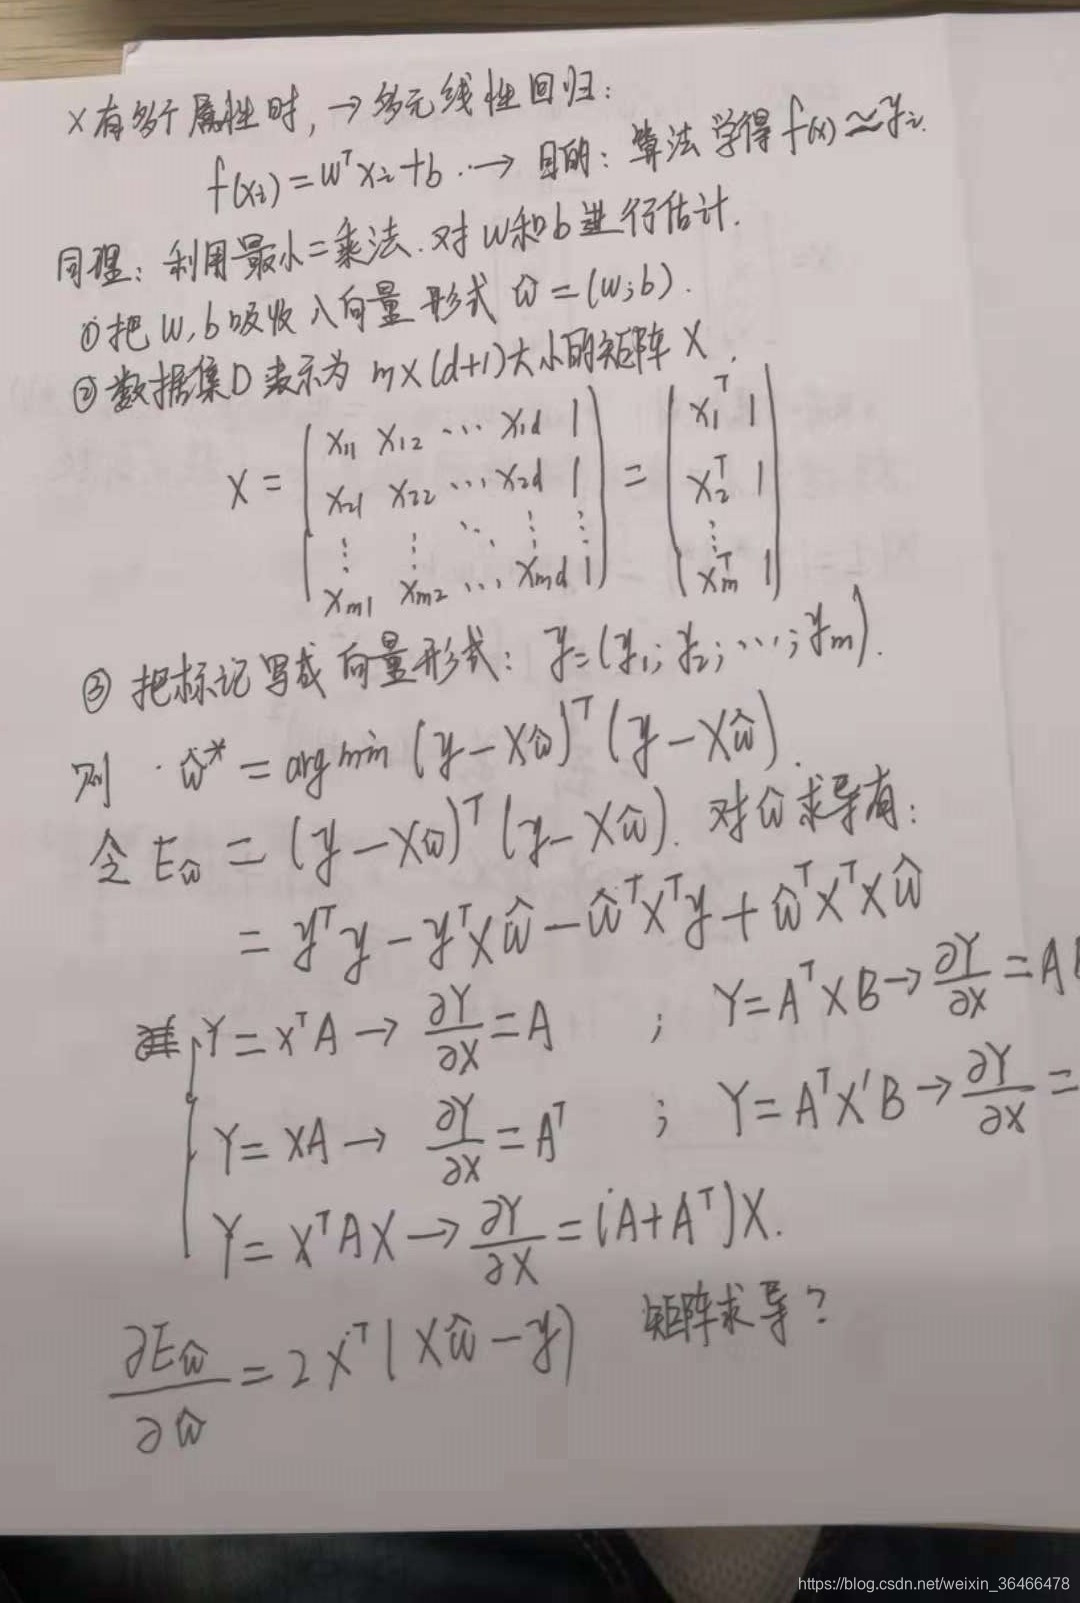 x有多个属性时, → 多元线性回归:
f(xᵢ) = wᵀxᵢ+b ..→ 目的: 算法学得 f(x) ≃ yᵢ.
同理: 利用最小二乘法. 对w和b进行估计.
① 把 w, b 吸收入向量形式 ŵ = (w;b).
② 数据集D表示为 m×(d+1)大小的矩阵 X.
X = ( x₁₁ x₁₂ ⋯ x₁d 1 ) = ( x₁ᵀ 1 )
x₂₁ x₂₂ ⋯ x₂d 1 x₂ᵀ 1
⋮ ⋮ ⋱ ⋮ ⋮ ⋮
xm₁ xm₂ ⋯ xmd 1 xmᵀ 1
③ 把标记写成向量形式: y=(y₁; y₂; ⋯; ym).
则 · ŵ* = arg min (y-Xŵ)ᵀ (y-Xŵ).
令 Eŵ = (y-Xŵ)ᵀ (y-Xŵ). 对ŵ求导有:
= yᵀy - yᵀXŵ - ŵᵀXᵀy + ŵᵀXᵀXŵ
Y = xᵀA → ∂Y/∂X = A ; Y=AᵀXB → ∂Y/∂X = A
Y = XA → ∂Y/∂X = Aᵀ ; Y=AᵀX'B → ∂Y/∂X =
Y = XᵀAX → ∂Y/∂X = (A+Aᵀ)X.
∂Eŵ/∂ŵ = 2Xᵀ(Xŵ-y) 矩阵求导?
https://blog.csdn.net/weixin_36466478